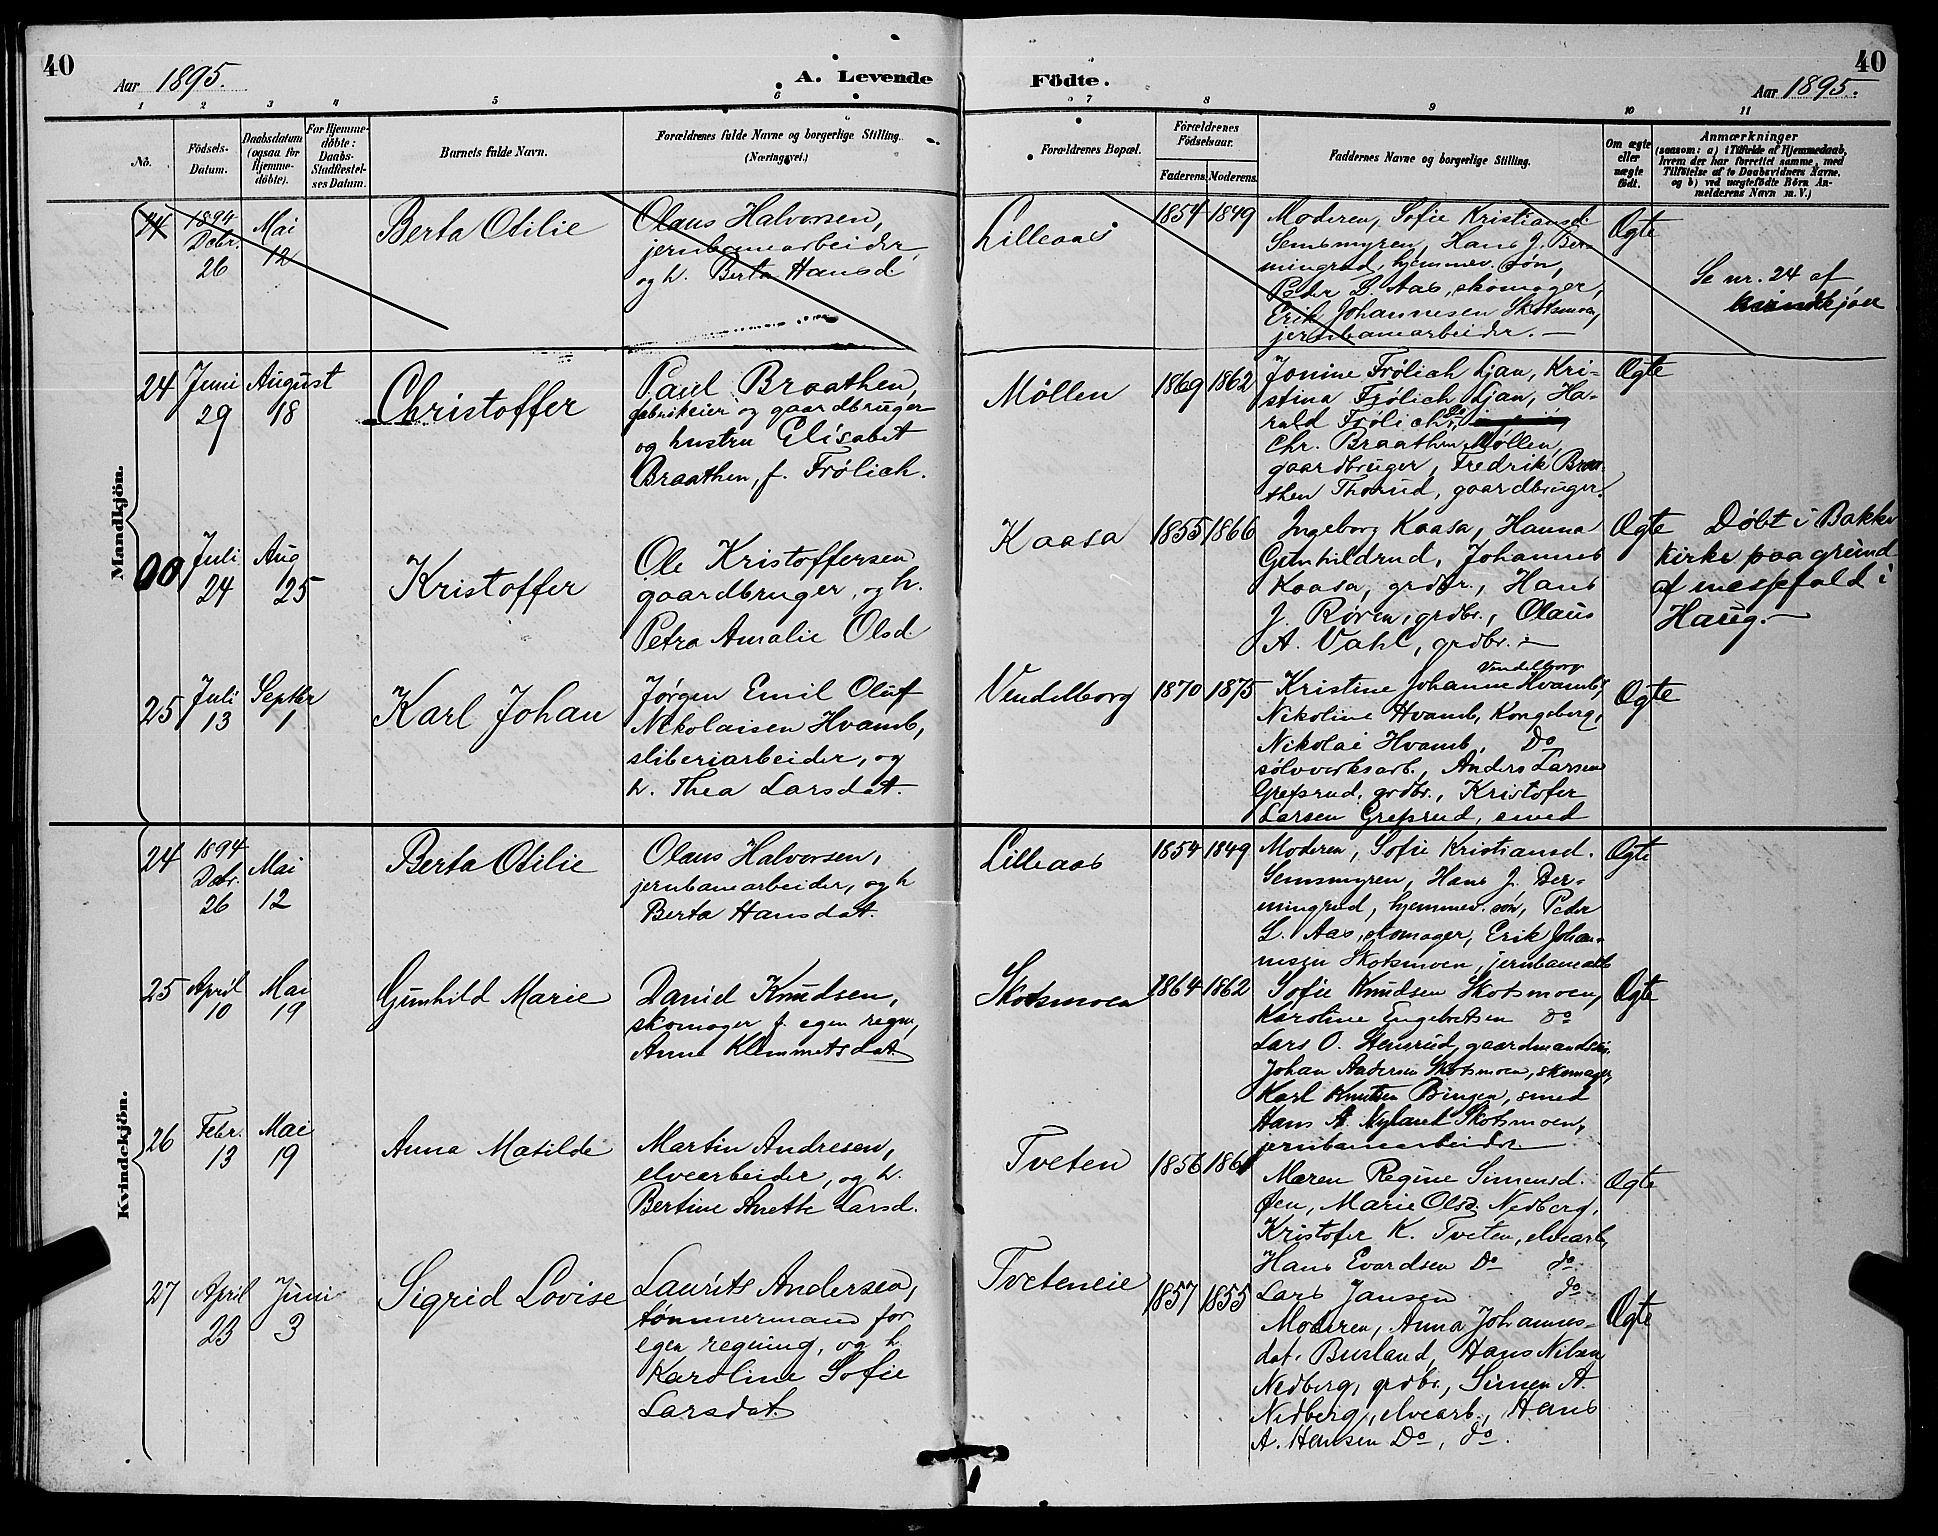 40
Aar 1895.
A. Levende
Födte.
Aar 1895.
40
1 2 3 4 5 6 7 8 9 10 11
No.
Födsels-
Datum.
Daabsdatum
(ogsaa for
Hjemme-
döbte).
For Hjemme-
döbte:
Daabs-
Stadfæstel-
ses Datum.
Barnets fulde Navn.
Forældrenes fulde Navne og borgerlige Stilling.
(Næringsvei.)
Forældrenes Bopæl.
Forældrenes
Födselsaar.
Faderens.
Moderens.
Faddernes Navne og borgerlige Stilling.
Om ægte
eller
uægte
födt.
Anmærkninger
(saasom: a) i Tilfælde af Hjemmedaab,
hvem der har forrettet samme, med
Tilföielse af to Daabsvidners Navne,
og b) ved uægtefödte Börn An-
melderens Navn m. V.)
Mandkjön.
24
1894
Debr.
26
Mai
12
Berta Otilie
Olaus Halvorsen,
jernbanearbeider
og h. Berta Hansd.
Lilleaas
1854
1849
Moderen, Sofie Kristiansd.
Semsmyren, Hans J. Ber
mingrud, hjemmev. søn,
Peder L. Aas, skomager,
Erik Johannesen Skotsmoen,
jernbanearbeider.
Ægte
Se nr. 24 af
kvindkjøn
24
Juni
29
August
18
Christoffer
Paul Braathen,
fabrikeier og gaardbruger
og hustru Elisabet
Braathen, f. Frølich.
Møllen
1869
1862
Jonine Frølich Ljan, Kri-
stina Frølich Ljan, Ha-
rald Frølich, Do
Chr. Braathen Møllen
gaardbruger, Fredrik Braa-
then Thorud, gaardbruger.
Ægte
00
Juli
24
Aug
25
Kristoffer
Ole Kristoffersen
gaardbruger, og h.
Petra Amalie Olsd.
Kaasa
1855
1866
Ingeborg Kaasa, Hanna
Gunhildrud, Johannes
Kaasa, grdbr., Hans
J. Røren, grdbr., Olaus
A. Vahl, grdbr.
Ægte
Døbt i Bakke
kirke paa grund
af messefald i
Haug.
25
Juli
13
Septbr
1
Karl Johan
Jørgen Emil Oluf
Nikolaisen Hvamb,
sliberiarbeider, og
h. Thea Larsdat.
Vendelborg
1870
1875
Vendelborg
Kristine Johanne Hvamb,
Nikoline Hvamb, Kongsberg,
Nikolai Hvamb, Do
sølvverksarb., Anders Larsen
Grefsrud, grdbr., Kristofer
Larsen Grefsrud, smed
Ægte
Kvindekjön.
24
1894
Debr.
26
Mai
12
Berta Otilie
Olaus Halvorsen,
jernbanearbeider, og h
Berta Hansdat.
Lilleaas
1854
1849
Moderen, Sofie Kristiansd.
Semsmyren, Hans J. Ber-
mingrud, hjemmev. søn, Peder
L. Aas, skomager, Erik Johan-
nesen Skotsmoen, jernbanearb
Ægte
25
April
10
Mai
19
Gunhild Marie
Daniel Knudsen,
skomager f. egen regn,
Anne Klemmetsdat
Skotsmoen
1864
1862
Sofie Knudsen Skotsmoen,
Karoline Engebretsen do
Lars O. Stensrud, gaardmandssøn
Johan Andersen Skotsmoen, skomager,
Karl Knutsen Bingen, smed
Hans A. Nyland Skotsmoen,
jernbanearbeider
Ægte
26
Febr.
13
Mai
19
Anna Matilde
Martin Andresen,
elvearbeider, og h.
Bertine Anette Larsd.
Tveten
1856
1861
Maren Regine Simensd.
Øen, Marie Olsd. Nedberg,
Kristofer K. Tveten, elvearb,
Hans Evardsen Do do
Lars Jansen do
Ægte
27
April
23
Juni
3
Sigrid Lovise
Laurits Andersen,
tømmermand for
egen regning, og h
Karoline Sofie
Larsdat.
Tveteneie
1857
1855
Moderen, Anna Johannes-
dat. Busland, Hans Nilsen
Nedberg, grdbr., Simen A.
Nedberg, elvearb., Hans
A. Hansen Do, do.
Ægte